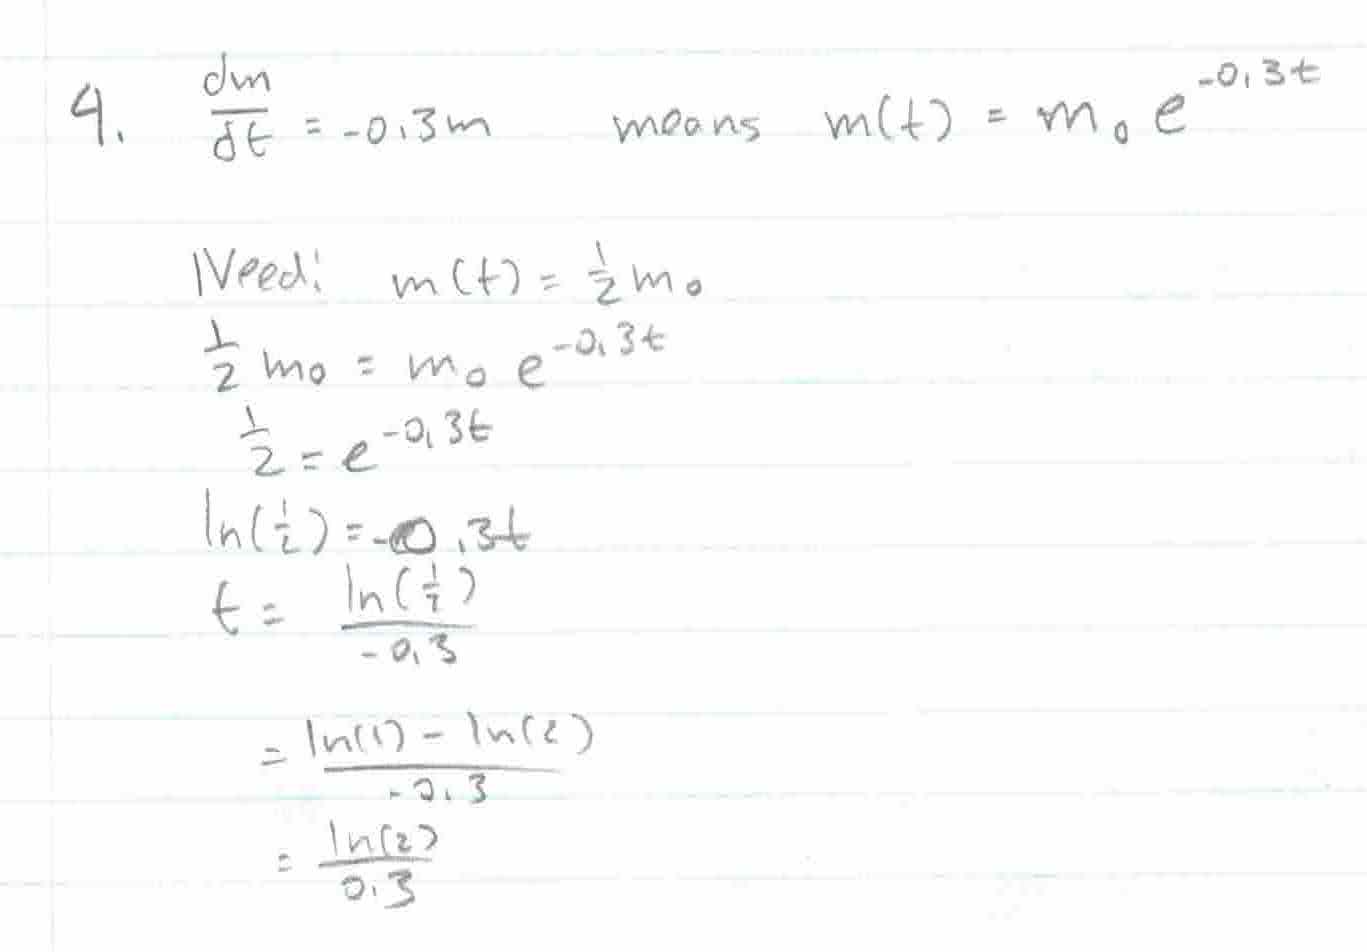 4. dm/dt = -0.3m means m(t) = m₀ e^(-0.3t)
Need: m(t) = 1/2 m₀
1/2 m₀ = m₀ e^(-0.3t)
1/2 = e^(-0.3t)
ln(1/2) = -0.3t
t = ln(1/2) / -0.3
= ln(1) - ln(2) / -0.3
= ln(2) / 0.3